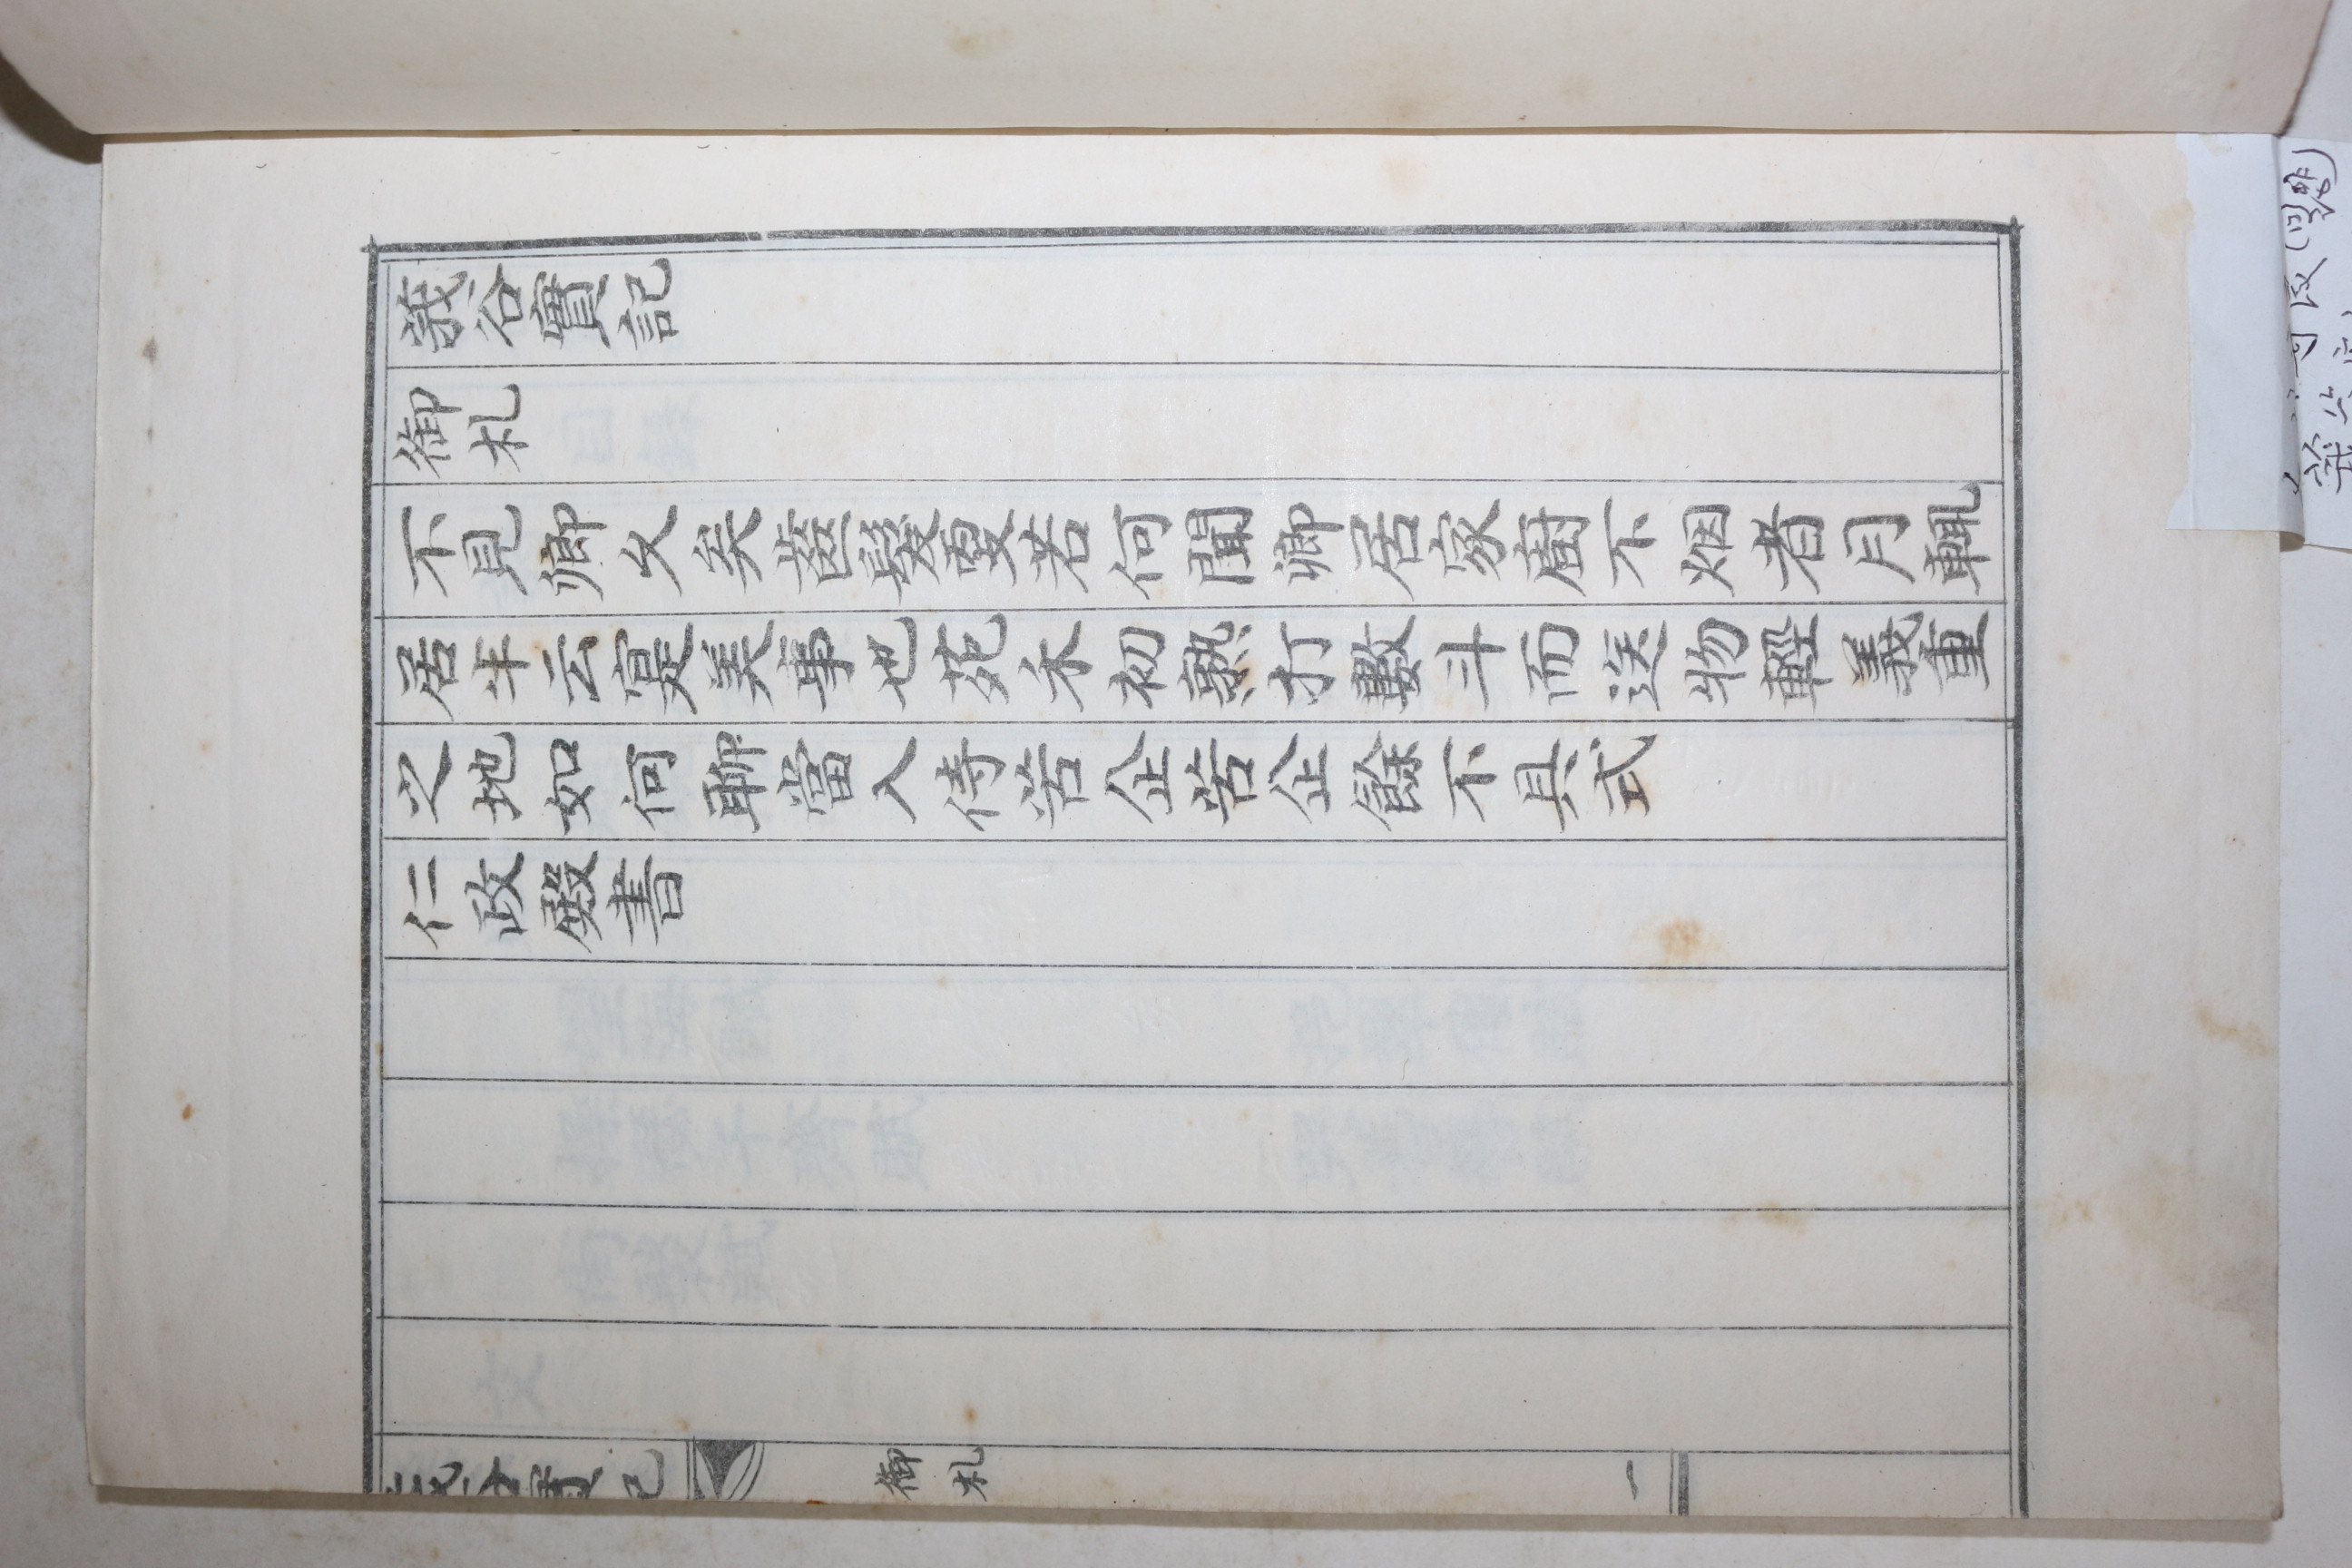 莪谷實記
御札
不見卿久矣齒髮更若何聞卿居家廚不烟者月輒
居半云寔美事也苑禾初熟打數斗而送物輕義重
之地如何聊當入侍苦企苦企餘不具式
仁政殿書
莪谷實記
御札
一